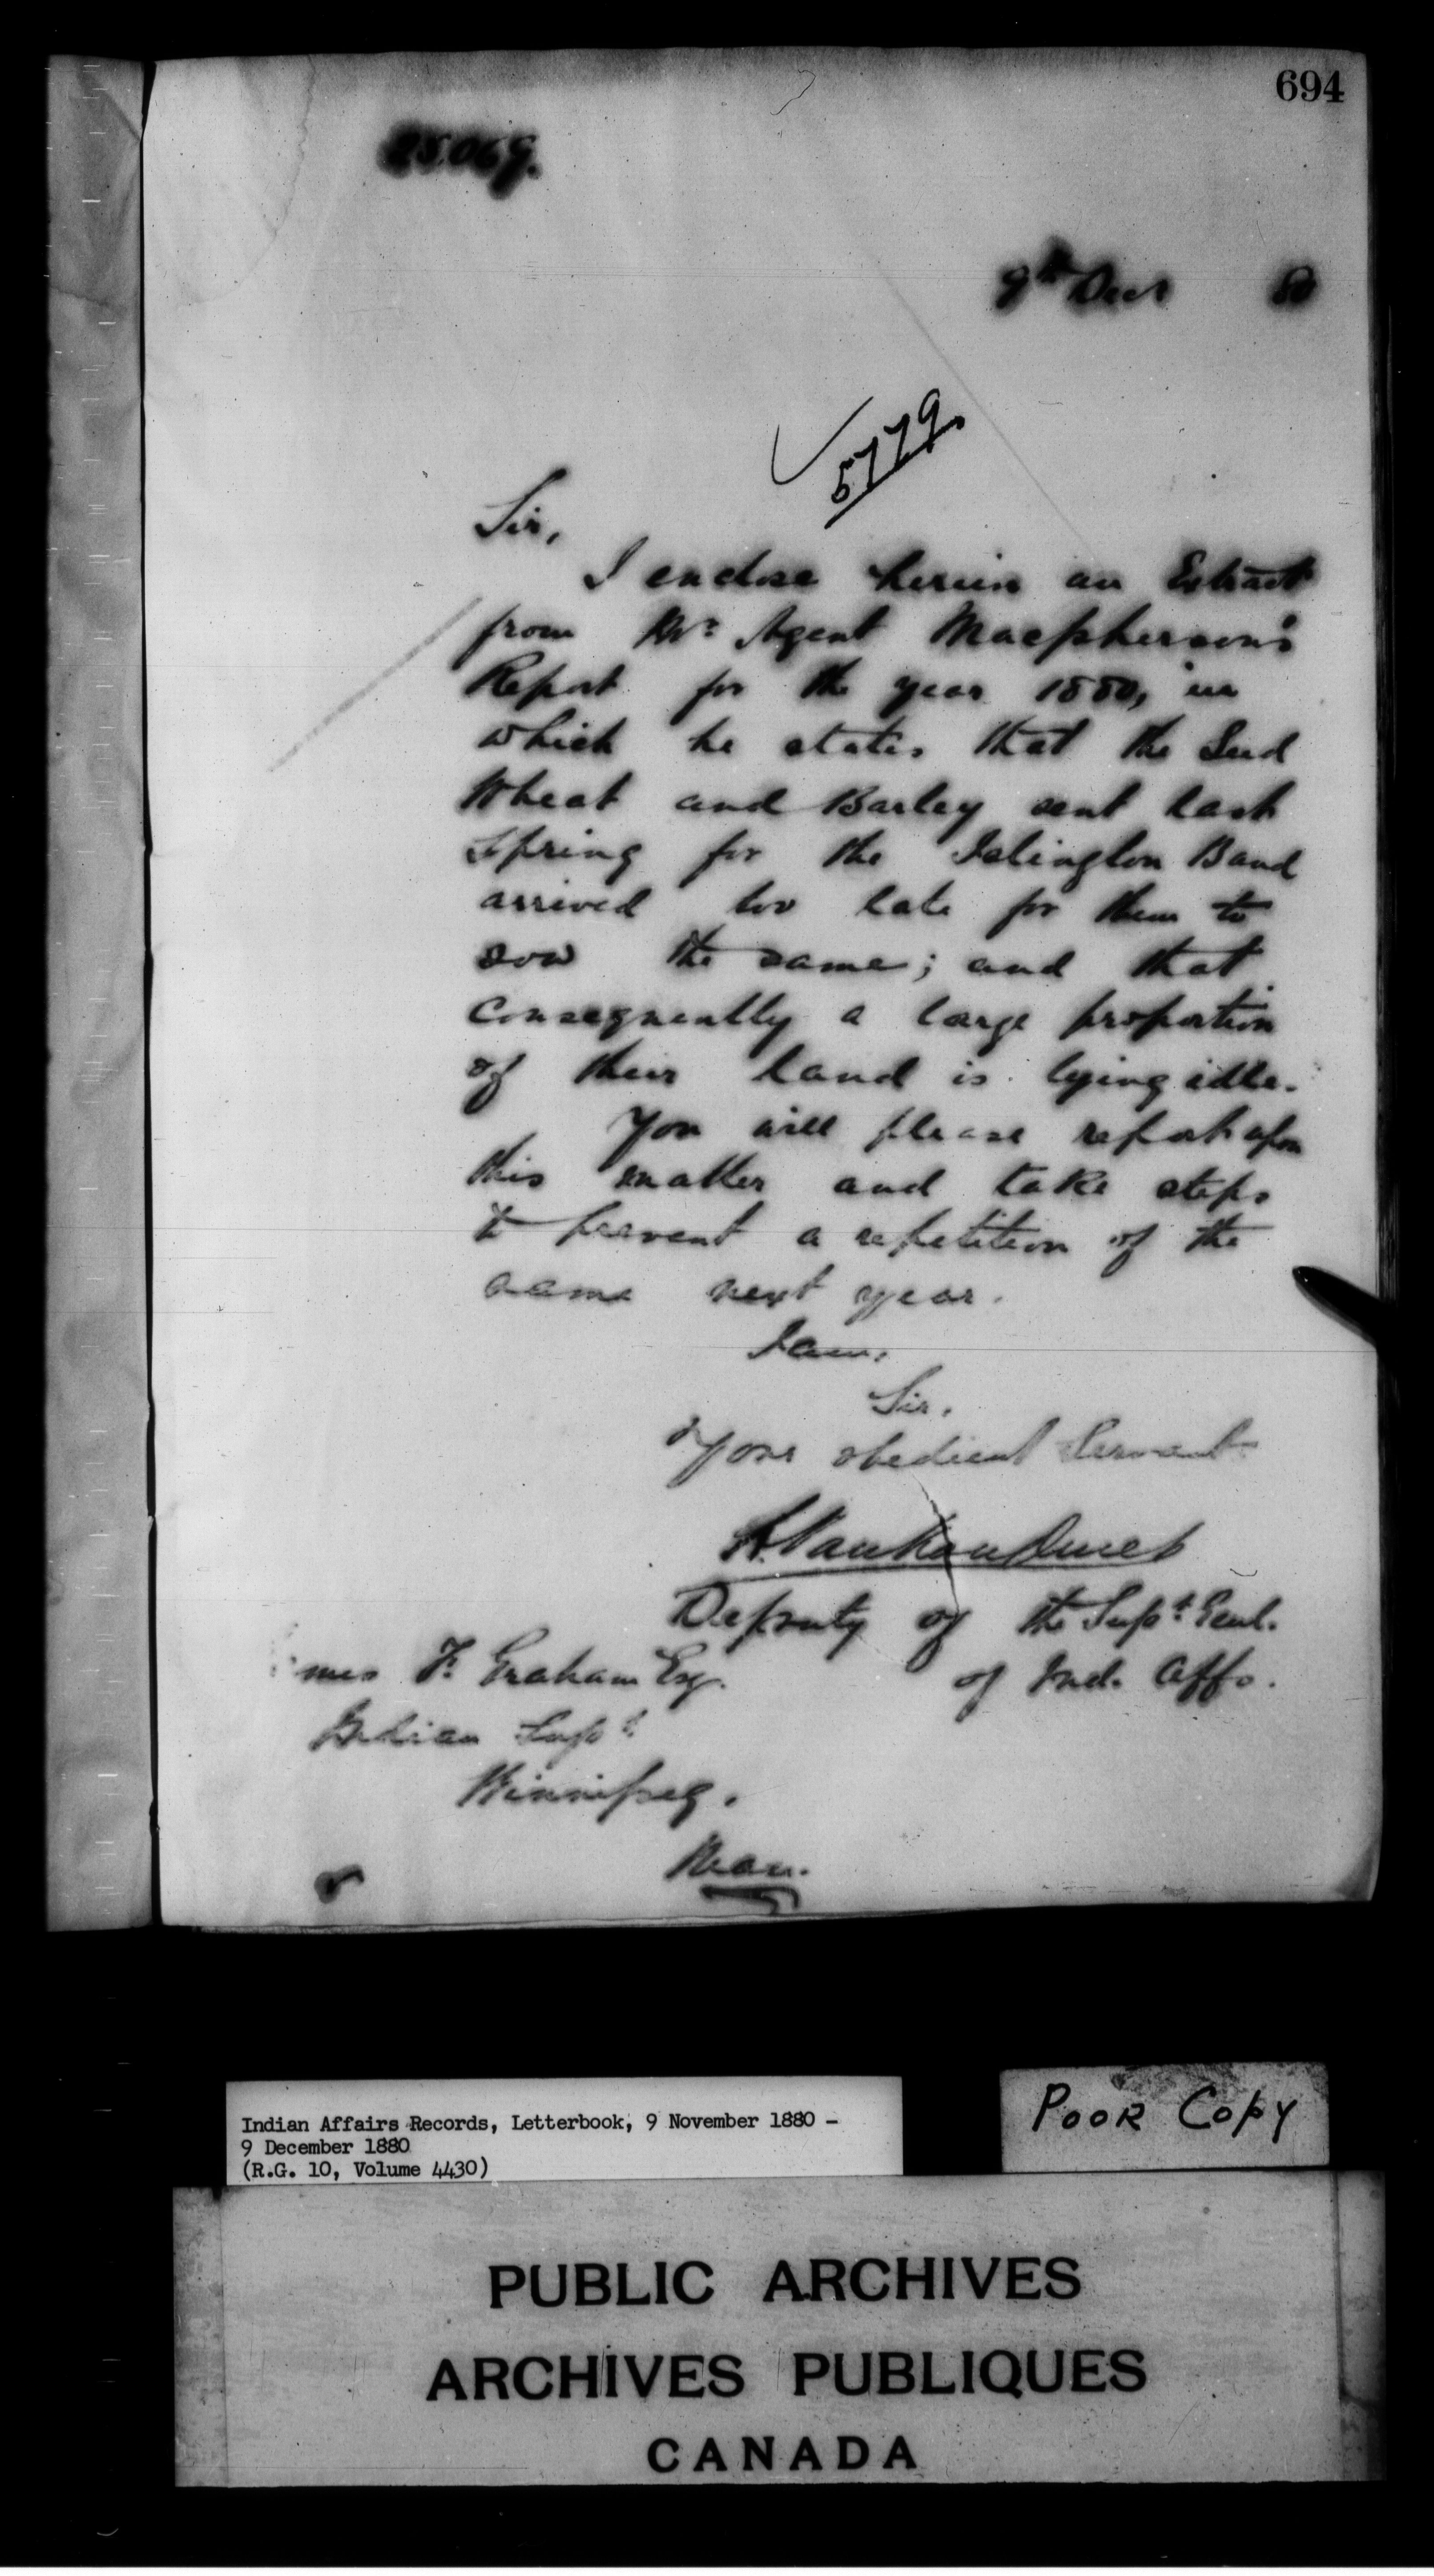 694
25069.
9th Decr 80
5779.
Sir,
I enclose herein an Extract
from Mr. Agent Macpherson's
Report for the year 1880, in
which he states that the Seed
Wheat and Barley sent last
Spring for the Islington Band
arrived too late for them to
sow the same; and that
consequently a large proportion
of their land is lying idle.
You will please report upon
this matter and take steps
to prevent a repetition of the
same next year.
I am,
Sir,
Your obedient Servant
L. Vankoughnet
Deputy of the Supt. Genl.
of Ind. Affs.
mes F. Graham Esq.
Indian Supt.
Winnipeg.
Man.
Indian Affairs Records, Letterbook, 9 November 1880 -
9 December 1880
(R.G. 10, Volume 4430)
POOR COPY
PUBLIC ARCHIVES
ARCHIVES PUBLIQUES
CANADA